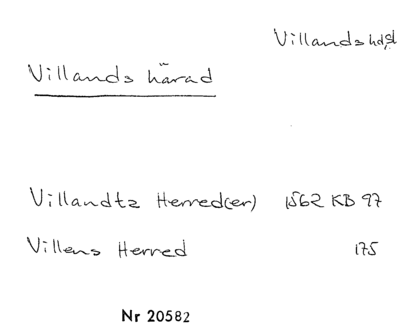 Villands hd,sk
Villands härad
Villandtz Herred(er) 1562 KB 97
Villens Herred 175
Nr 20582